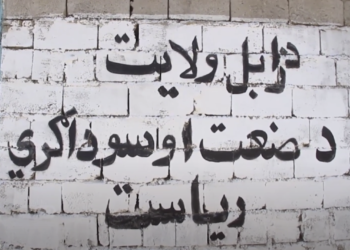 دزابل ولایت
د صنعت او سوداګرۍ
ریاست